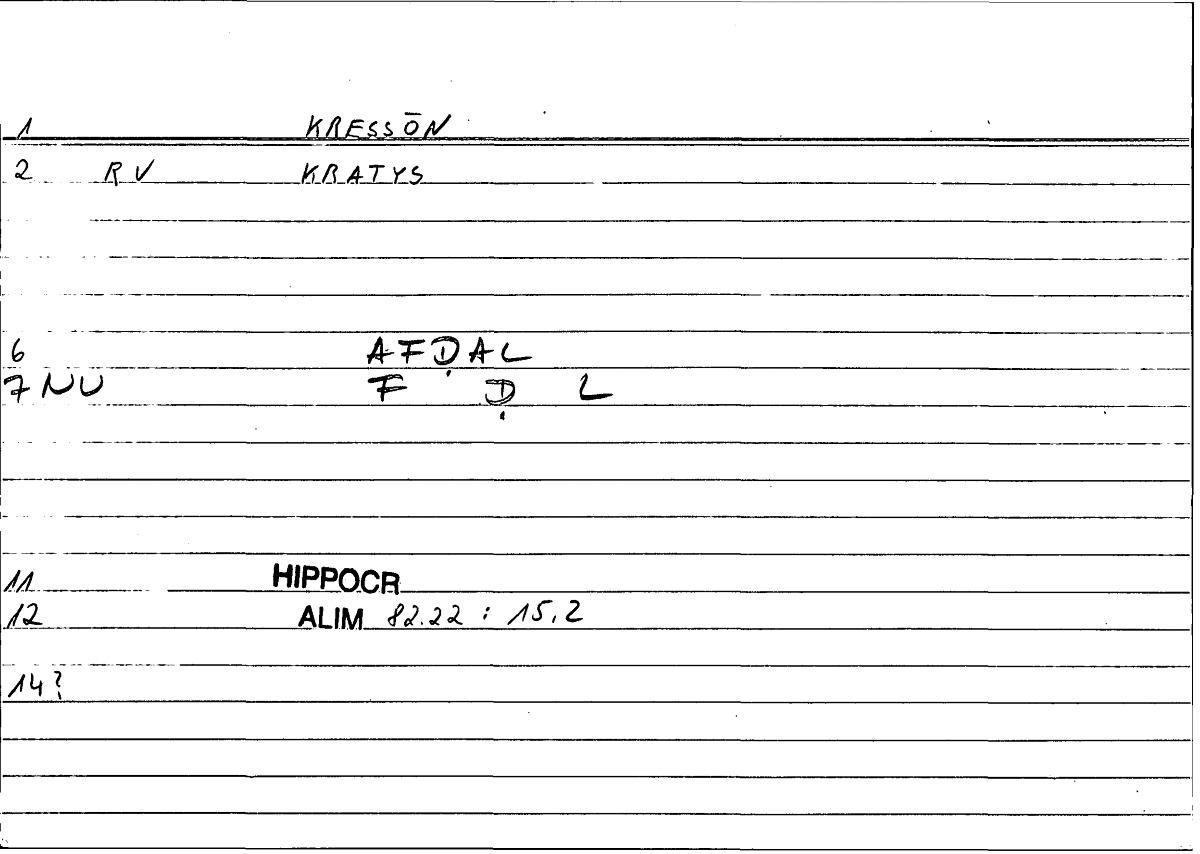 1 KRESSŌN
2 RV KRATYS
6 AFḌAL
7 NU F Ḍ L
11 HIPPOCR
12 ALIM 82.22 : 15,2
14?